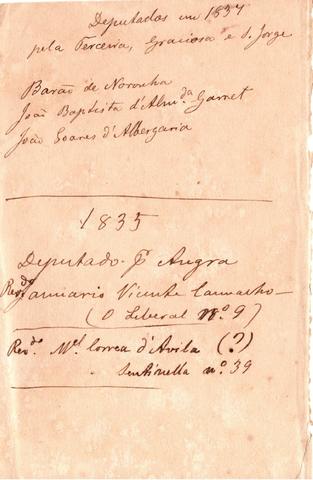 Deputados em 1834
pela Terceira, Graciosa e S. Jorge
Barão de Noronha
João Baptista d'Almda Garret
João Soares d'Albergaria
1835
Deputado pr Angra
Revdo Januario Vicente Camacho—
(O Liberal nº 9)
Revdo. Mel Correa d'Avila (?)
Sentinella nº 39